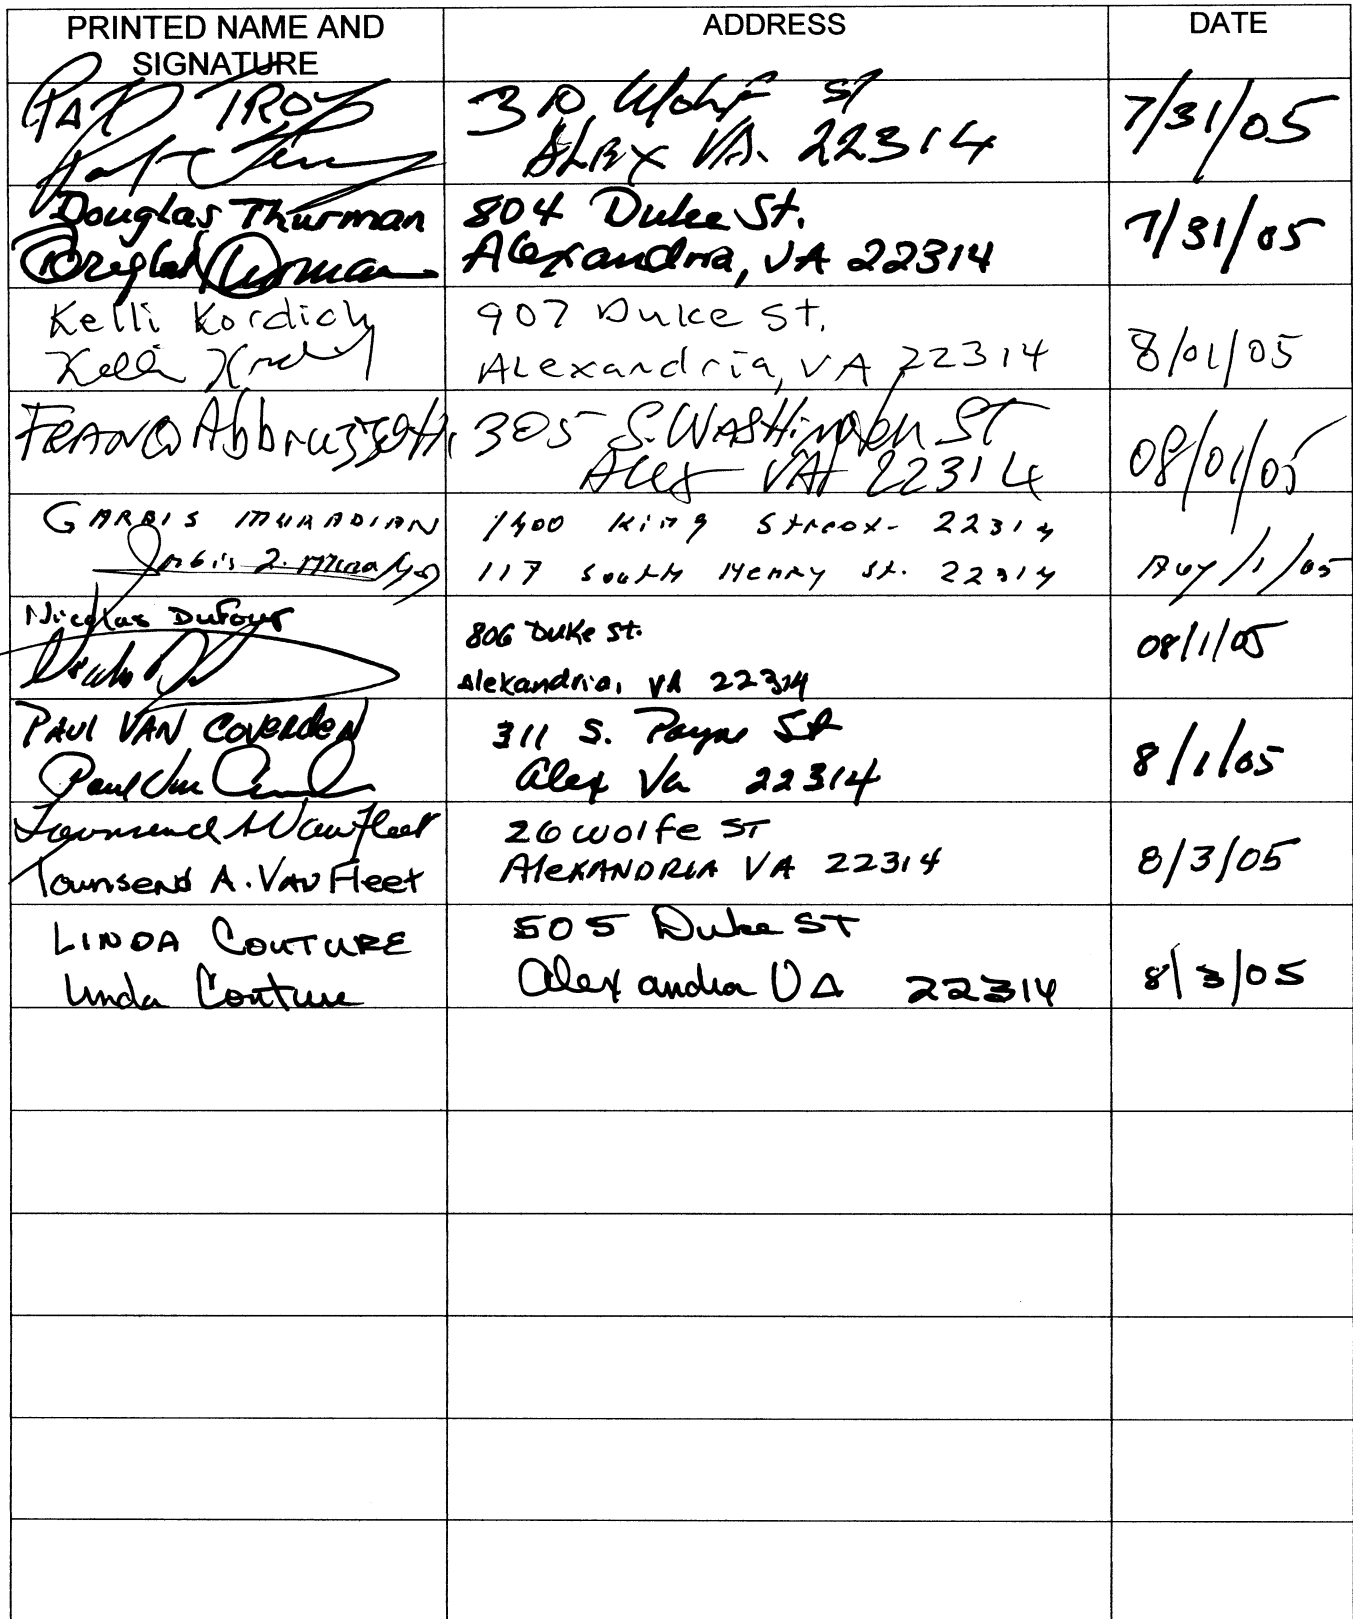 PRINTED NAME AND
SIGNATURE
ADDRESS
DATE
PAT TROY
310 Wolfe ST
ALEX VA. 22314
7/31/05
Douglas Thurman
Douglas Thurman
804 Duke St.
Alexandria, VA 22314
7/31/05
Kelli Kordich
Kelli
907 Duke St.
Alexandria, VA 22314
8/01/05
FRANCO Abbruzzetti
305 S. WASHington ST
Alex VA 22314
08/01/05
GARBIS MURADIAN
1400 King Street - 22314
117 South Henry St. 22314
Aug/1/05
Nicolas Dufour
806 Duke St.
Alexandria, VA 22314
08/1/05
PAUL VAN COVERDEN
Paul Van
311 S. Payne St
Alex Va 22314
8/1/05
Townsend A Van Fleet
Townsend A. Van Fleet
26 Wolfe ST
AleXANDRIA VA 22314
8/3/05
LINDA COUTURE
Linda Couture
505 Duke ST
Alexandria VA 22314
8/3/05